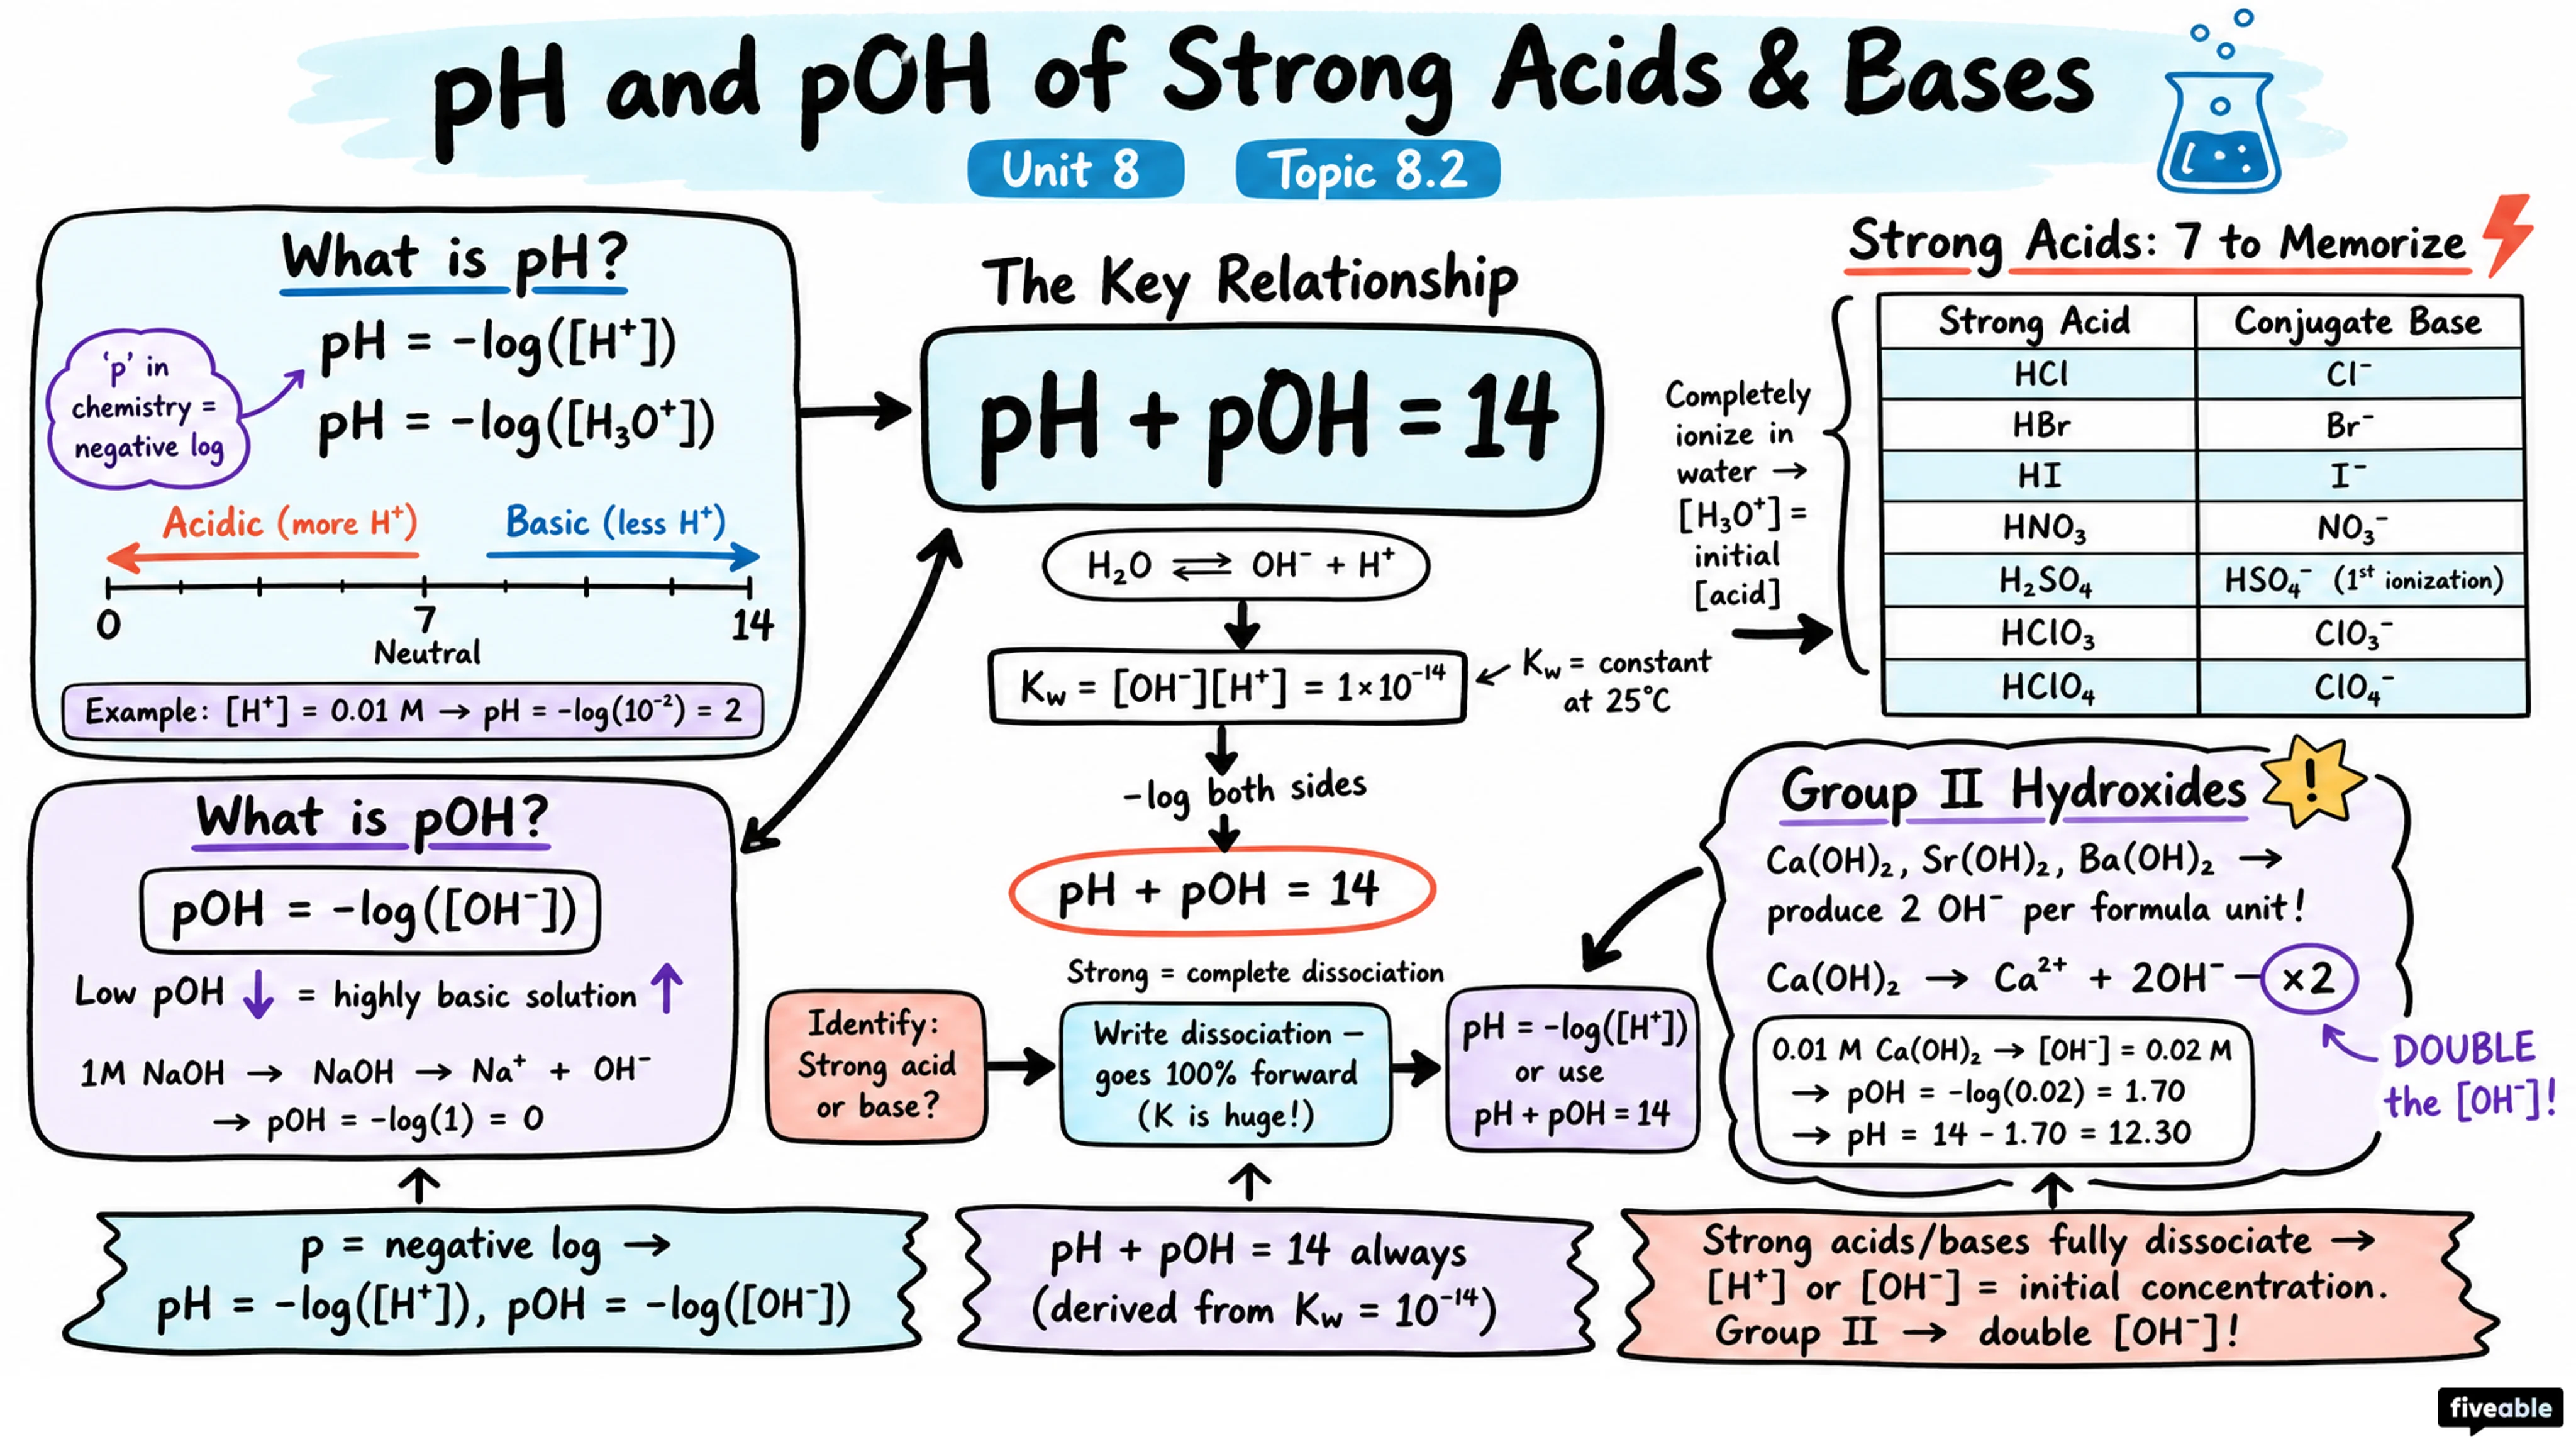 pH and pOH of Strong Acids & Bases
Unit 8
Topic 8.2
What is pH?
'p' in
chemistry =
negative log
pH = -log([H⁺])
pH = -log([H₃O⁺])
Acidic (more H⁺)
Basic (less H⁺)
0
7
14
Neutral
Example: [H⁺] = 0.01 M → pH = -log(10⁻²) = 2
What is pOH?
pOH = -log([OH⁻])
Low pOH ↓ = highly basic solution ↑
1M NaOH → NaOH → Na⁺ + OH⁻
→ pOH = -log(1) = 0
The Key Relationship
pH + pOH = 14
H₂O ⇌ OH⁻ + H⁺
Kw = [OH⁻][H⁺] = 1×10⁻¹⁴
Kw = constant
at 25°C
-log both sides
pH + pOH = 14
Strong Acids: 7 to Memorize
Completely
ionize in
water →
[H₃O⁺] =
initial
[acid]
Strong Acid Conjugate Base
HCl Cl⁻
HBr Br⁻
HI I⁻
HNO₃ NO₃⁻
H₂SO₄ HSO₄⁻ (1st ionization)
HClO₃ ClO₃⁻
HClO₄ ClO₄⁻
Strong = complete dissociation
Identify:
Strong acid
or base?
Write dissociation –
goes 100% forward
(K is huge!)
pH = -log([H⁺])
or use
pH + pOH = 14
Group II Hydroxides
!
Ca(OH)₂, Sr(OH)₂, Ba(OH)₂ →
produce 2 OH⁻ per formula unit!
Ca(OH)₂ → Ca²⁺ + 2OH⁻ – ×2
0.01 M Ca(OH)₂ → [OH⁻] = 0.02 M
→ pOH = -log(0.02) = 1.70
→ pH = 14 - 1.70 = 12.30
DOUBLE
the [OH⁻]!
p = negative log →
pH = -log([H⁺]), pOH = -log([OH⁻])
pH + pOH = 14 always
(derived from Kw = 10⁻¹⁴)
Strong acids/bases fully dissociate →
[H⁺] or [OH⁻] = initial concentration.
Group II → double [OH⁻]!
fiveable